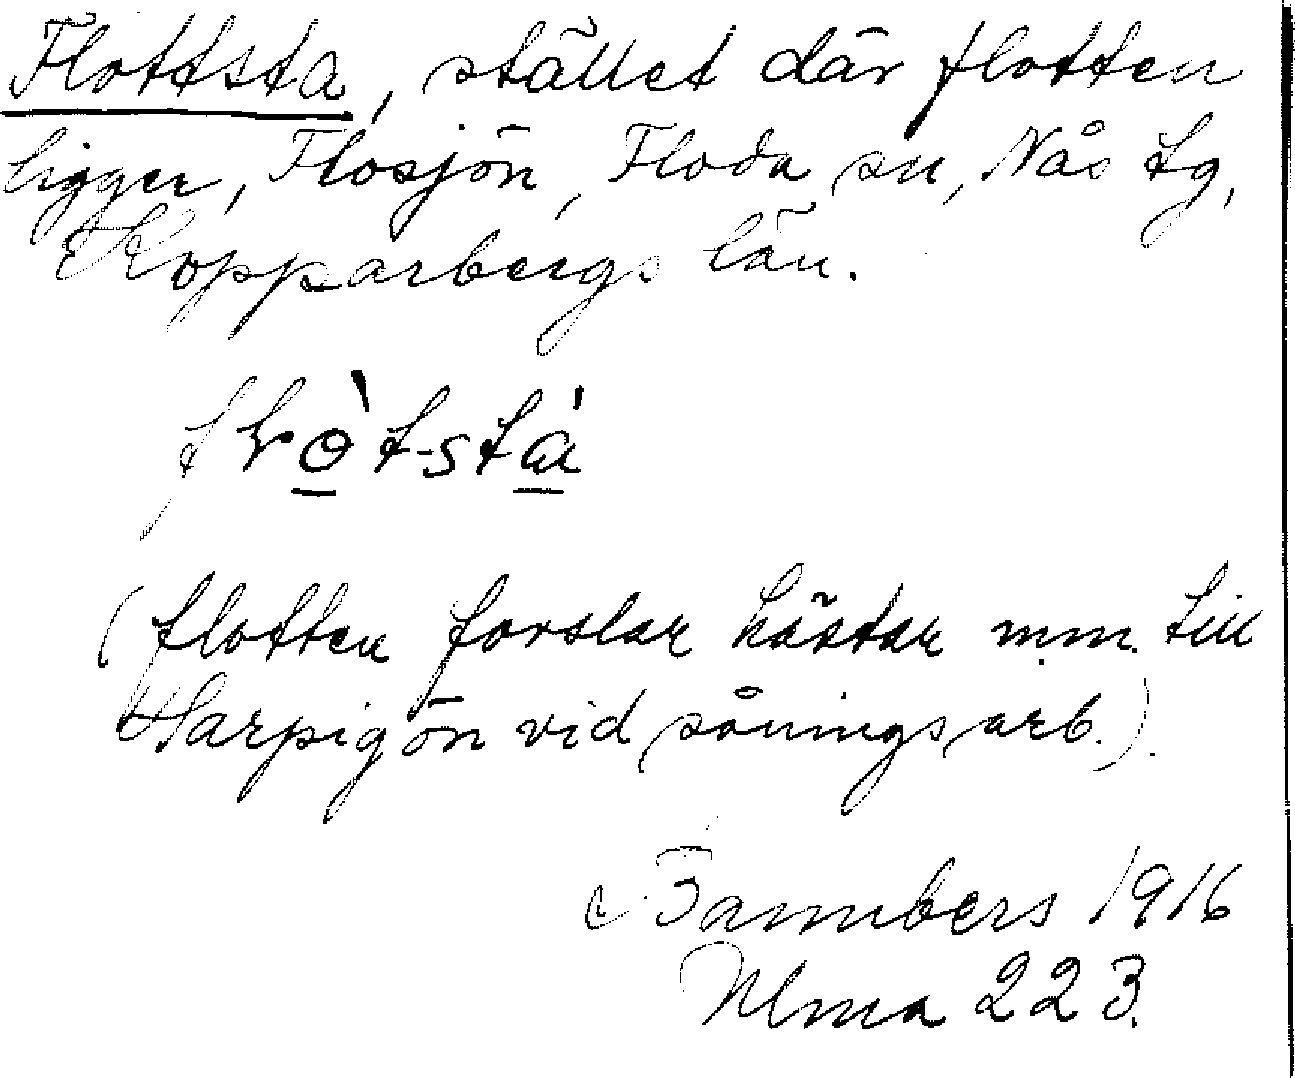 Flottsta, stället där flotten
ligger, Flosjön, Floda sn, Nås tg,
Kopparbergs län.
(flotten forslar hästar m.m. till
Harpigön vid såningsarb.).
Bannbers 1916
Ulma 223.